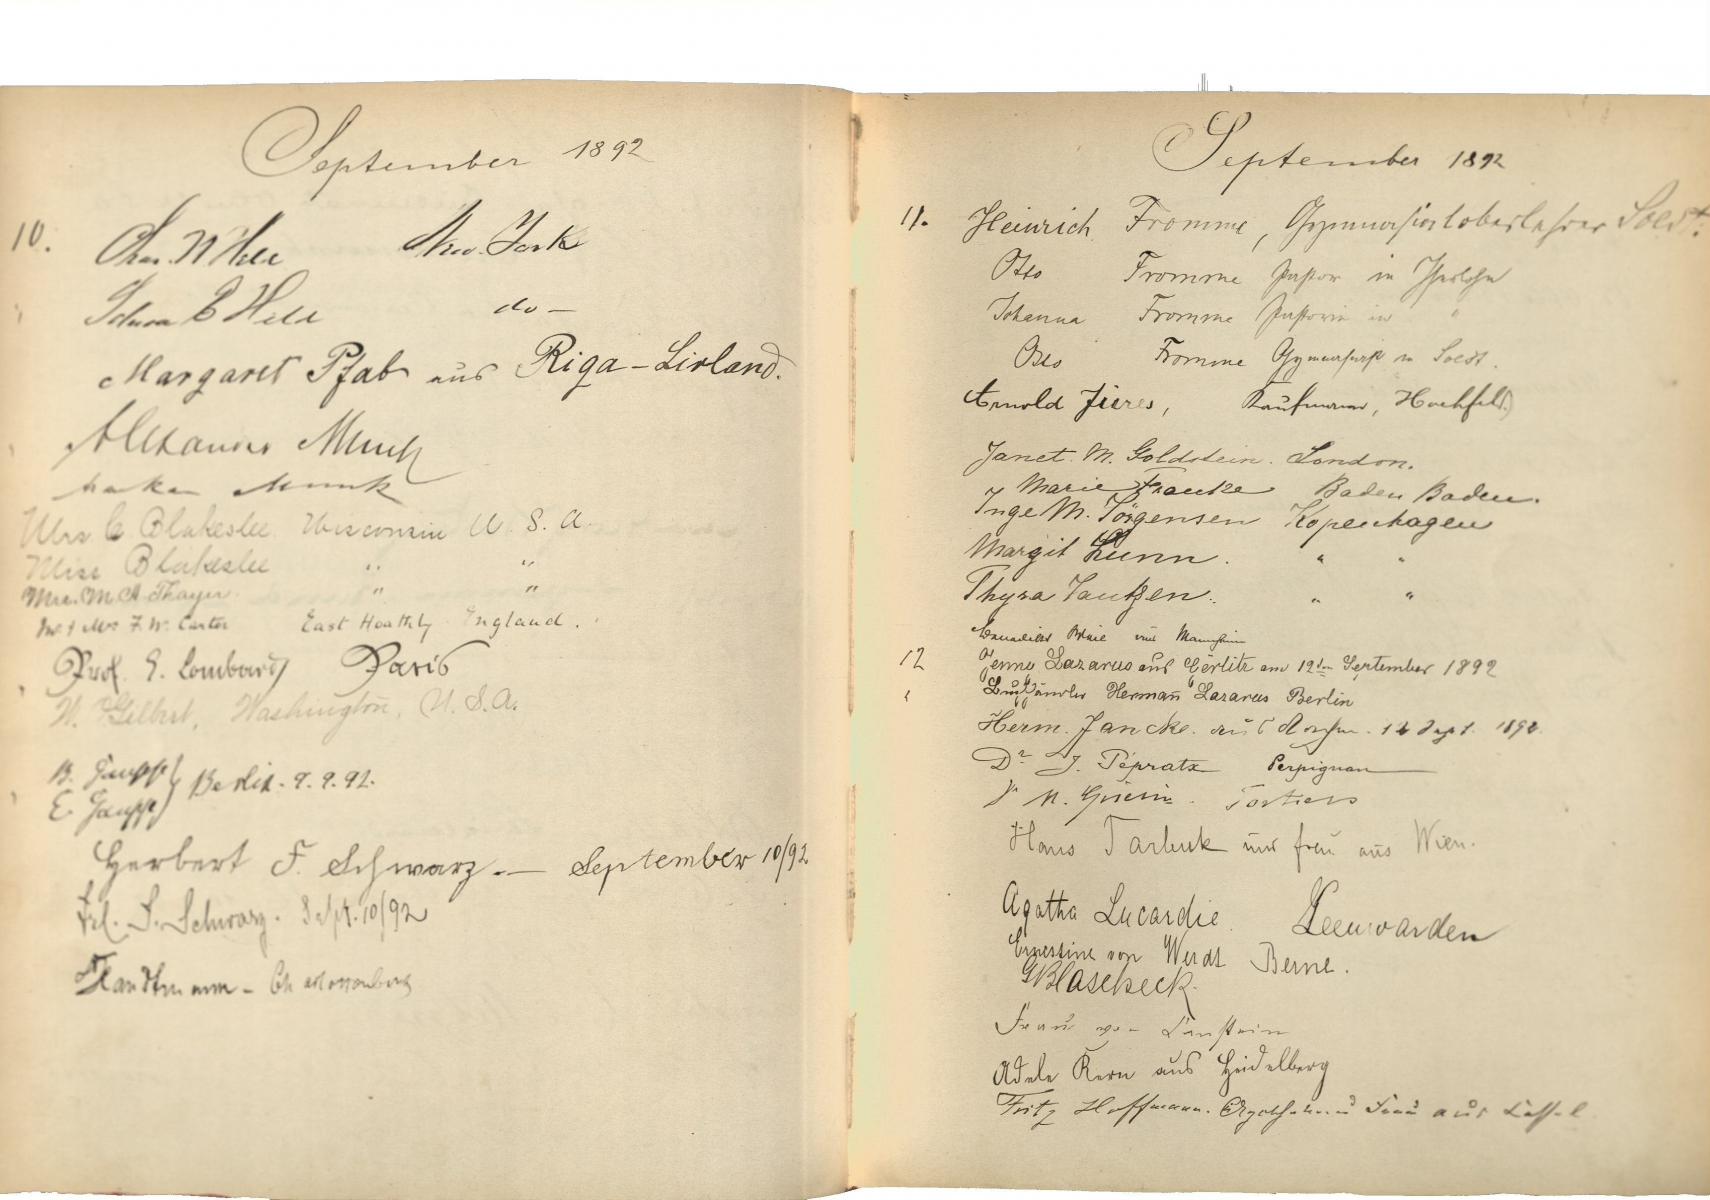 September 1892
10. New York
do –
Margaret Pfab aus Riga – Livland.
Alexander Munk
Munk
Mrs C Blakeslee Wisconsin U. S. A.
Miss Blakeslee " "
Mrs. M. A. Thayer. " "
Mr & Mrs F. W. Carter East Hoathly England.
Prof. E. Lombard Paris
W. Gilbert, Washington, U. S. A.
B. Gaupp Berlin. 9. 9. 92.
E. Gaupp
Herbert F. Schwarz. — September 10/92
Frl. S. Schwarz. Sept. 10/92
Handtmann – Charlottenburg
September 1892
11. Heinrich Fromme, Gymnasialoberlehrer Soest.
Otto Fromme Pastor in Iserlohn
Johanna Fromme Pastorin in "
Otto Fromme Gymnasiast in Soest.
Arnold Kaufmann, Hochfeld
Janet. M. Goldstein. London.
Marie Francke Baden Baden.
Inge M. Jörgensen Kopenhagen
Margit Lunn. " "
Thyra Jantzen. " "
aus Mannheim
12 Jenny Lazarus aus Görlitz am 12ten September 1892
" Buchhändler Hermann Lazarus Berlin
Herm. Jancke. aus 12 Sept. 1892.
Dr J. Pépratx Perpignan
Dr M. Guérin. Poitiers
Hans Tarbuk und frau aus Wien.
Agatha Lucardie Leeuwarden
Ernestine von Werdt Berne.
G Blascheck.
Frau von
Adele Kern aus Heidelberg
Fritz Hoffmann. u Frau aus Cassel